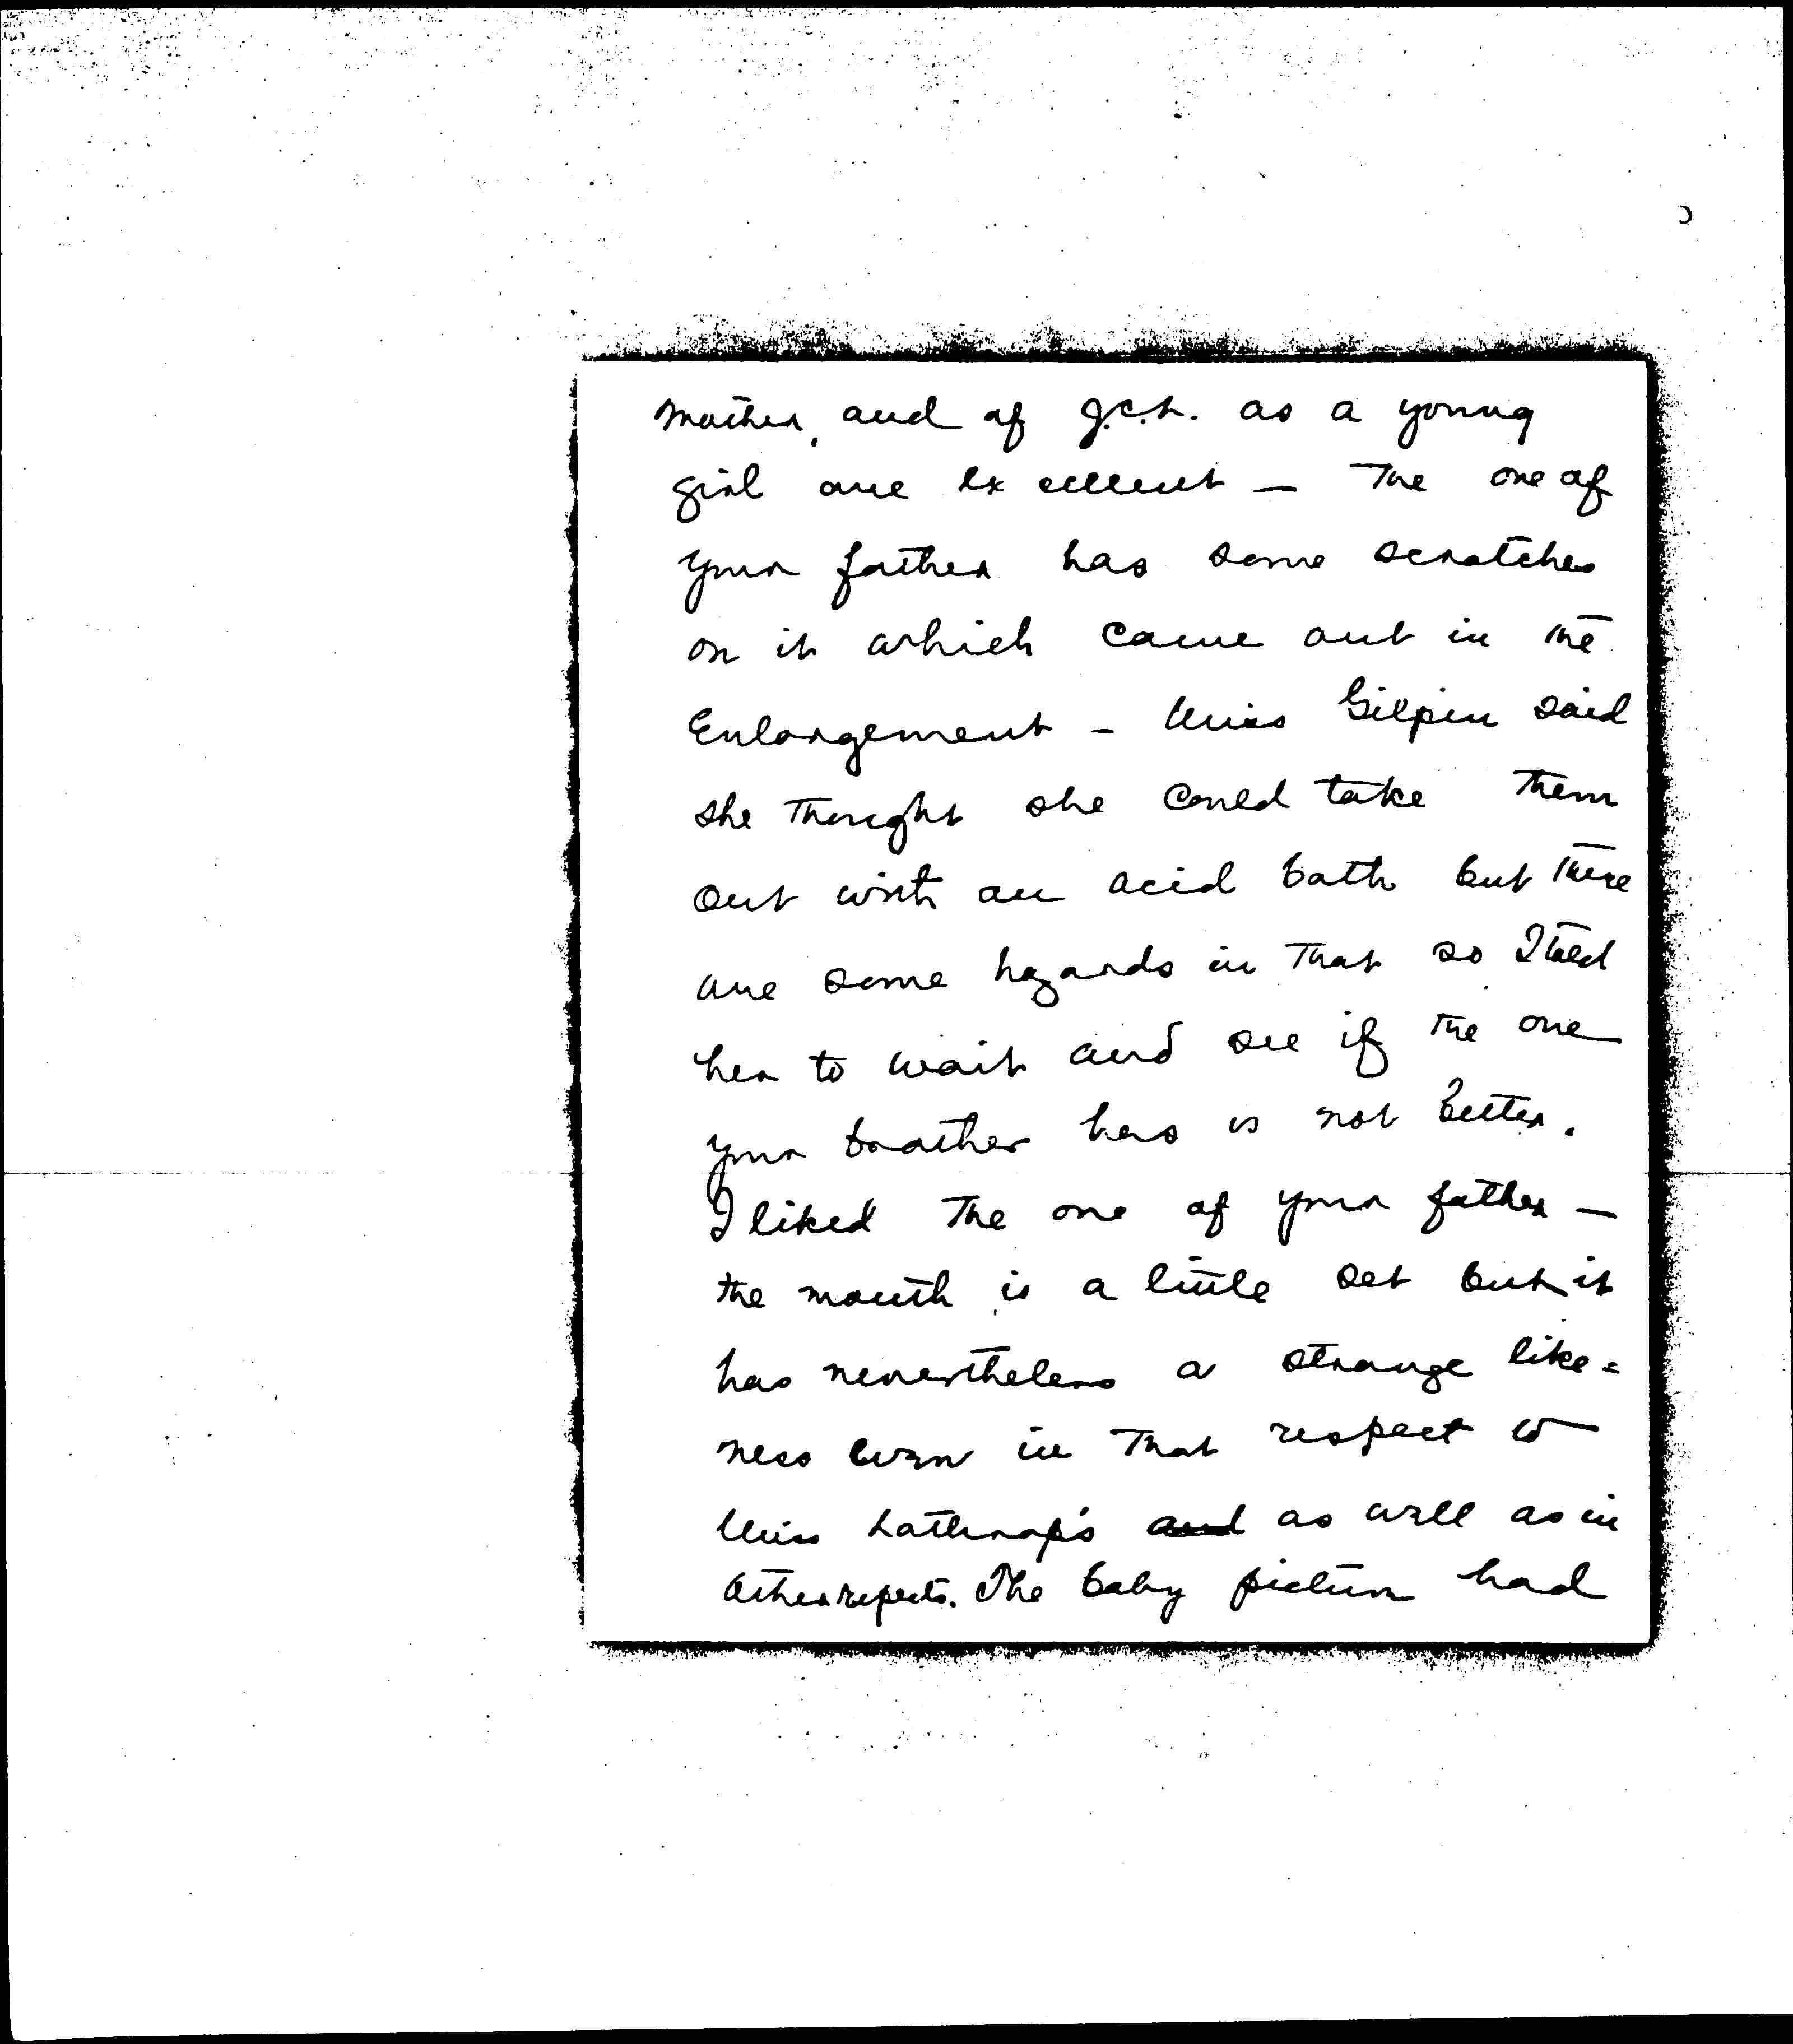 mother, and of J.C.L. as a young
girl are excellent — The one of
your father has some scratches
on it which came out in the
Enlargement – Miss Gilpin said
she thought she could take them
out with an acid bath but there
are some hazards in that so I told
her to wait and see if the one
your brother has is not better.
I liked the one of your father —
the mouth is a little set but it
has nevertheless a strange like=
ness even in that respect to
Miss Lathrop's and as well as in
other repects. The baby picture had